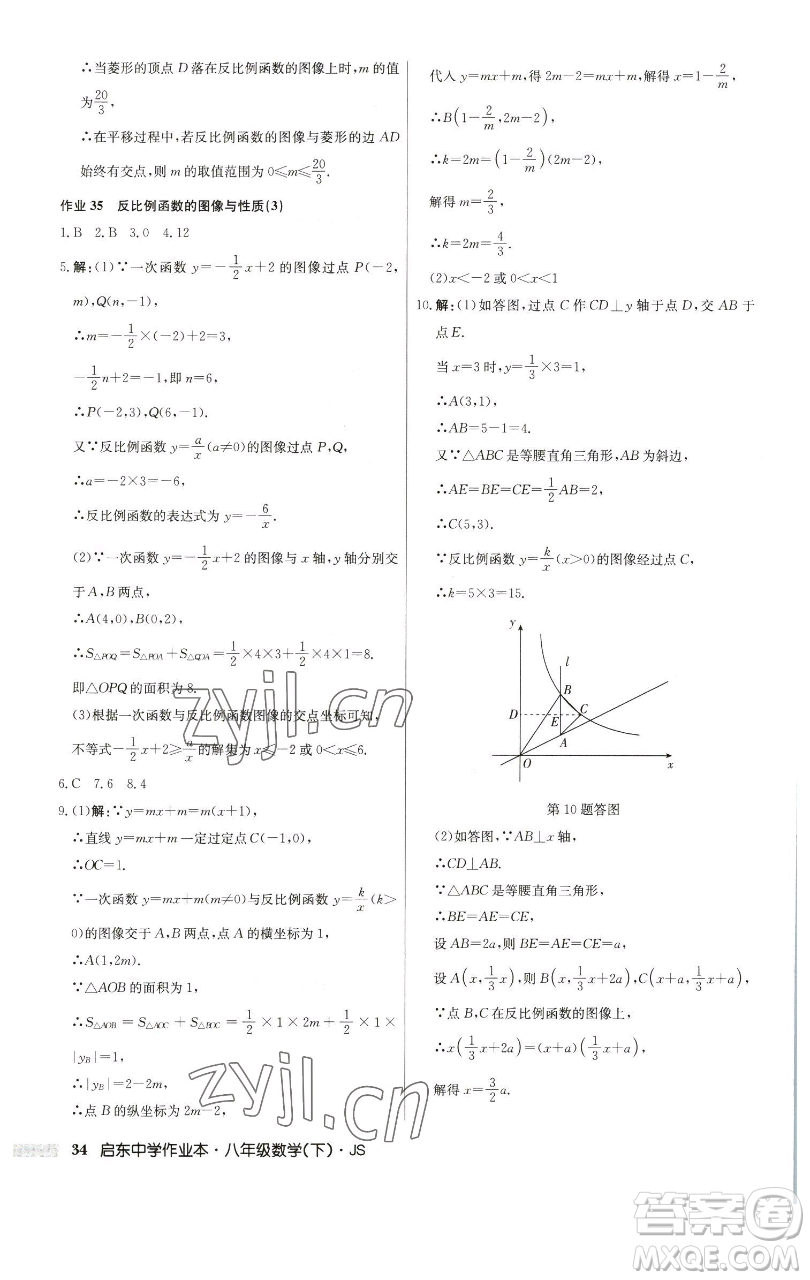 ∴当菱形的顶点 D 落在反比例函数的图像上时,m 的值
为20/3,
∴在平移过程中,若反比例函数的图像与菱形的边 AD
始终有交点,则 m 的取值范围为 0≤m≤20/3.
作业 35 反比例函数的图像与性质(3)
1.B 2.B 3.0 4.12
5.解:(1)∵一次函数 y=-1/2x+2 的图像过点 P(-2,
m),Q(n,-1),
∴m=-1/2×(-2)+2=3,
-1/2n+2=-1,即 n=6,
∴P(-2,3),Q(6,-1).
又∵反比例函数 y=a/x(a≠0)的图像过点 P,Q,
∴a=-2×3=-6,
∴反比例函数的表达式为 y=-6/x.
(2)∵一次函数 y=-1/2x+2 的图像与 x 轴,y 轴分别交
于 A,B 两点,
∴A(4,0),B(0,2),
∴S△POQ=S△POA+S△QOA=1/2×4×3+1/2×4×1=8.
即△OPQ 的面积为 8.
(3)根据一次函数与反比例函数图像的交点坐标可知,
不等式-1/2x+2≥a/x的解集为 x≤-2 或 0<x≤6.
6.C 7.6 8.4
9.(1)解:∵y=mx+m=m(x+1),
∴直线 y=mx+m 一定过定点 C(-1,0),
∴OC=1.
∵一次函数 y=mx+m(m≠0)与反比例函数 y=k/x(k>
0)的图像交于 A,B 两点,点 A 的横坐标为 1,
∴A(1,2m).
∵△AOB 的面积为 1,
∴S△AOB=S△AOC+S△BOC=1/2×1×2m+1/2×1×
|yB|=1,
∴|yB|=2-2m,
∴点 B 的纵坐标为 2m-2,
代入 y=mx+m,得 2m-2=mx+m,解得 x=1-2/m,
∴B(1-2/m,2m-2),
∴k=2m=(1-2/m)(2m-2),
解得 m=2/3,
∴k=2m=4/3.
(2)x<-2 或 0<x<1
10.解:(1)如答图,过点 C 作 CD⊥y 轴于点 D,交 AB 于
点 E.
当 x=3 时,y=1/3×3=1,
∴A(3,1),
∴AB=5-1=4.
又∵△ABC 是等腰直角三角形,AB 为斜边,
∴AE=BE=CE=1/2AB=2,
∴C(5,3).
∵反比例函数 y=k/x(x>0)的图像经过点 C,
∴k=5×3=15.
y
l
B
D E C
A
O x
第 10 题答图
(2)如答图,∵AB⊥x 轴,
∴CD⊥AB.
∵△ABC 是等腰直角三角形,
∴BE=AE=CE,
设 AB=2a,则 BE=AE=CE=a,
设 A(x,1/3x),则 B(x,1/3x+2a),C(x+a,1/3x+a),
∵点 B,C 在反比例函数的图像上,
∴x(1/3x+2a)=(x+a)(1/3x+a),
解得 x=3/2a.
34 启东中学作业本·八年级数学(下)·JS
zyjl.cn
zyjl.cn
答案圈
MXQE.COM